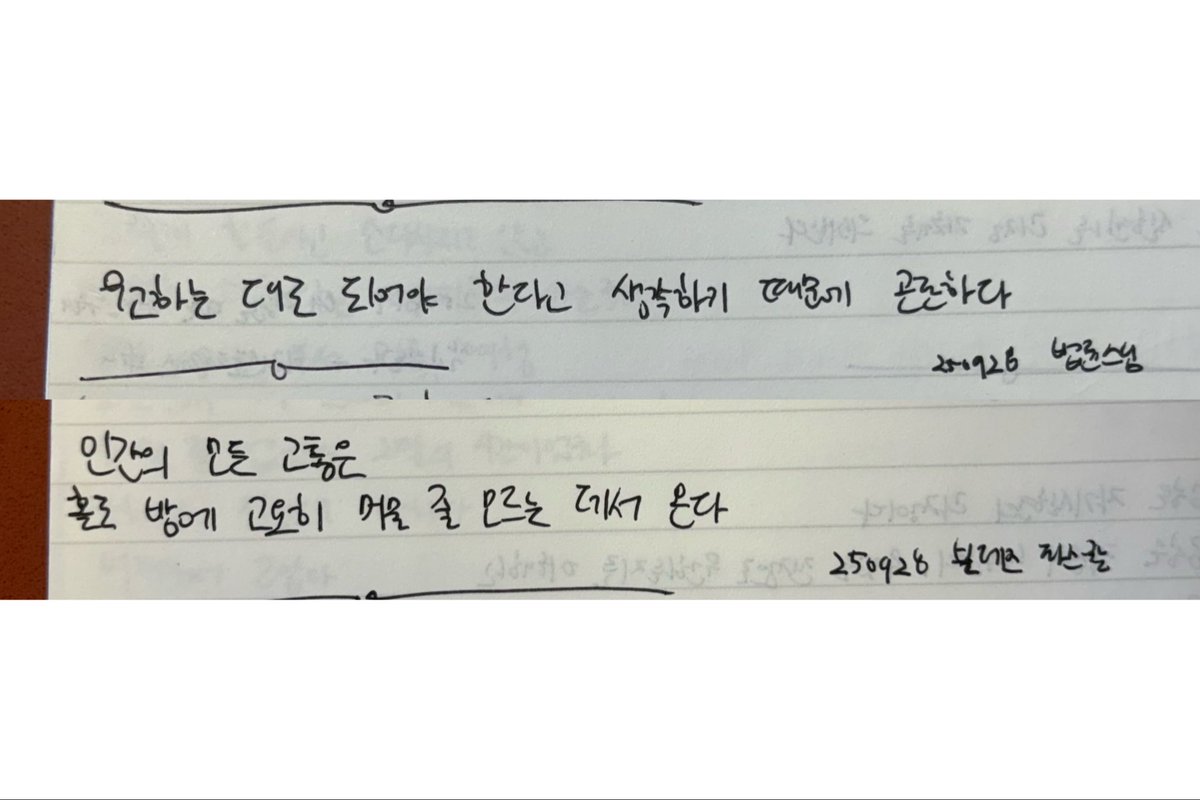 욕구하는 대로 되어야 한다고 생각하기 때문에 곤란하다
250928 법륜스님
인간의 모든 고통은
홀로 방에 고요히 머물 줄 모르는 데서 온다
250928 블레즈 파스칼